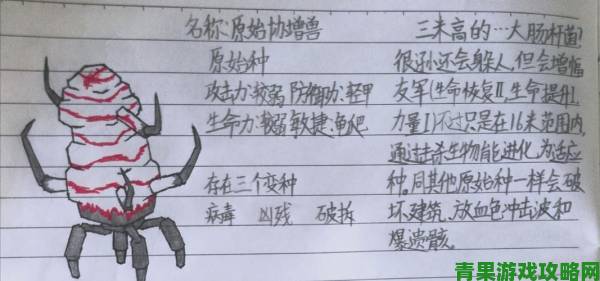 名称:原始协增兽
原始种
攻击力:较弱 防御力:轻甲
生命力:较弱 敏捷:单爬
存在三个变种
病毒 凶残 破拆
三米高的…大肠杆菌?
很孬还会躲人,但会增幅
友军(生命恢复Ⅱ,生命提升1,
力量1)不过只是在16米范围内,
通过击杀生物能进化,为适应
种,同其他原始种一样会破
坏建筑、放血色冲击波和
爆遗骸.
青果游戏攻略网